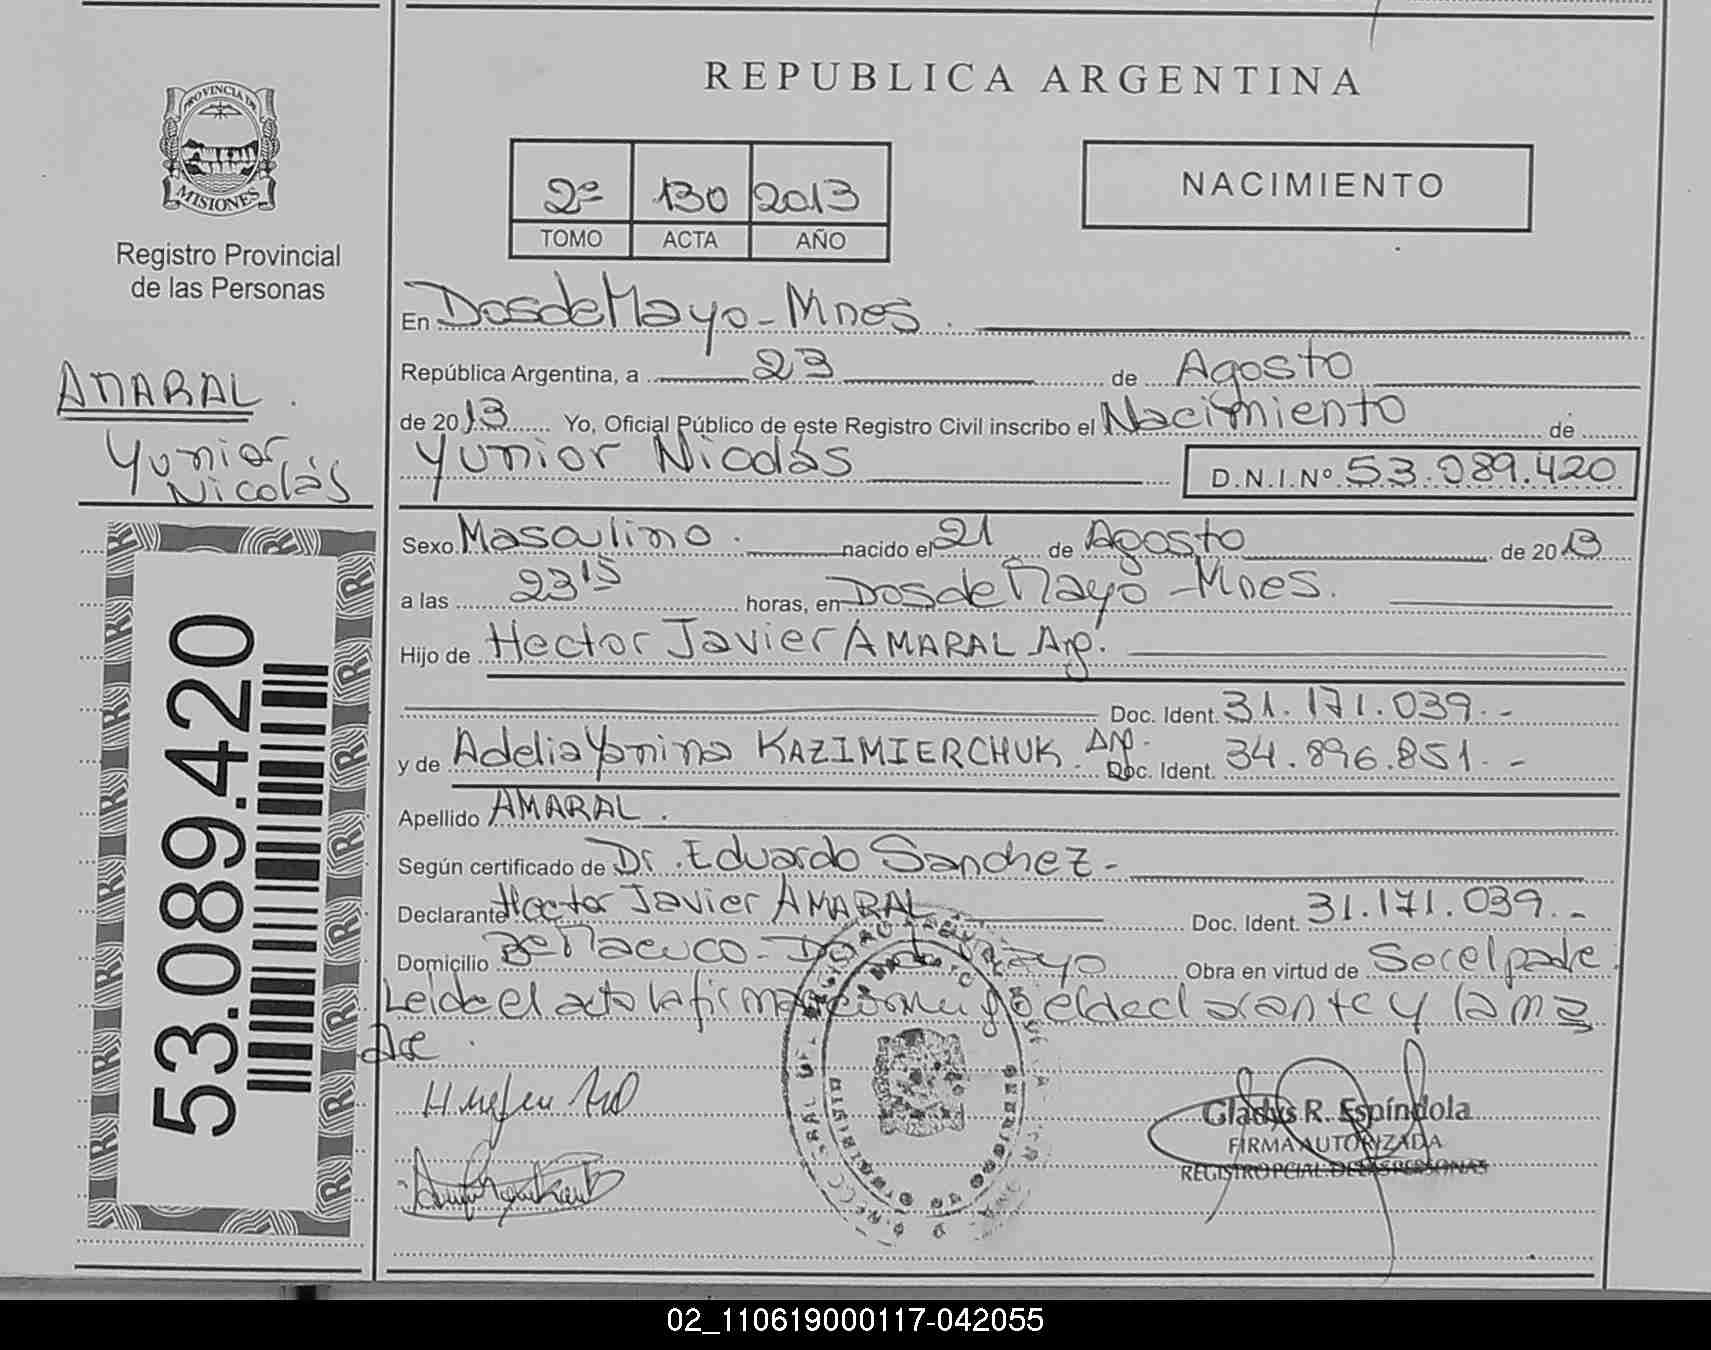 REPUBLICA ARGENTINA
PROVINCIA DE
MISIONES
Registro Provincial
de las Personas
2º 130 2013
TOMO ACTA AÑO
NACIMIENTO
En Dos de Mayo - Mnes.
República Argentina, a 23 de Agosto
de 2013 Yo, Oficial Público de este Registro Civil inscribo el Nacimiento de
Yunior Nicolás D.N.I.Nº 53.089.420
AMARAL.
Yunior
Nicolás
53.089.420
Sexo Masculino. nacido el 21 de Agosto de 2013
a las 23 15 horas, en Dos de Mayo - Mnes.
Hijo de Hector Javier AMARAL Arg.
Doc. Ident. 31.171.039.-
y de Adelia Yanina KAZIMIERCHUK. Arg. Doc. Ident. 34.896.851.-
Apellido AMARAL.
Según certificado de Dr. Eduardo Sanchez-
Declarante Hector Javier AMARAL Doc. Ident. 31.171.039.-
Domicilio Bº Macuco - Dos de Mayo Obra en virtud de Ser el padre.
Leída el acta la firman conmigo el declarante y la ma
dre.
Gladys R. Espíndola
FIRMA AUTORIZADA
REGISTRO PCIAL. DE LAS PERSONAS
02_110619000117-042055